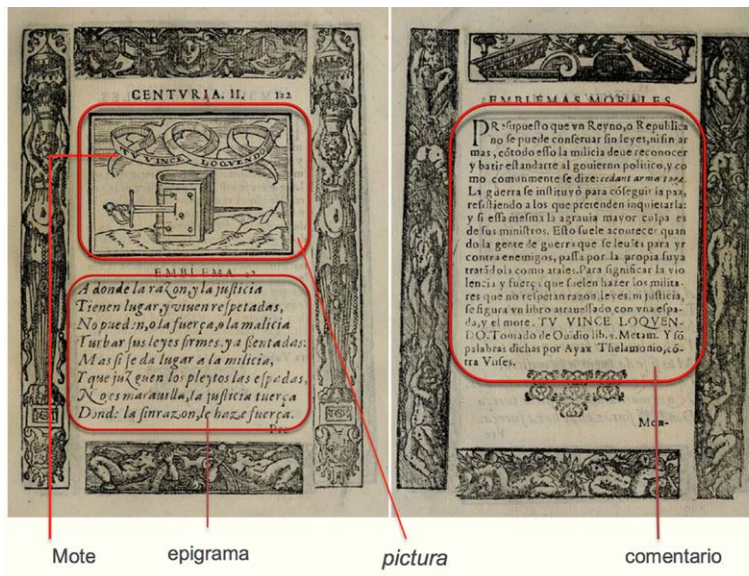 CENTVRIA. II. 122
TV VINCE LOQVENDO
EMBLEMA 22
A donde la razon, y la justicia
Tienen lugar, y viuen respetadas,
No pueden, o la fuerça, o la malicia
Turbar sus leyes firmes, y assentadas:
Mas si se da lugar a la milicia,
Y que juzguen los pleytos las espadas,
No es marauilla, la justicia tuerça
Donde la sinrazon, le haze fuerça.
Pre-
EMBLEMAS MORALES
PResupuesto que vn Reyno, o Republica
no se puede conseruar sin leyes, ni sin ar
mas, cõtodo esso la milicia deue reconocer
y batir estandarte al gouierno politico, y co
mo comunmente se dize: cedant arma togæ.
La guerra se instituyò para cõseguir la paz,
resistiendo a los que pretenden inquietarla:
y si essa mesma la agrauia mayor culpa es
de sus ministros. Esto suele acontecer quan
do la gente de guerra que se leuãta para yr
contra enemigos, passa por la propia suya
tratãdola como a tales. Para significar la vio
lencia y fuerça que suelen hazer los milita-
res que no respetan razon, leyes, ni justicia,
se figura vn libro atrauessado con vna espa-
da, y el mote. TV VINCE LOQVEN-
DO. Tomado de Ouidio lib. Metam. Y sõ
palabras dichas por Ayax Thelamonio, cõ-
tra Vlises.
Mon-
Mote
epigrama
pictura
comentario